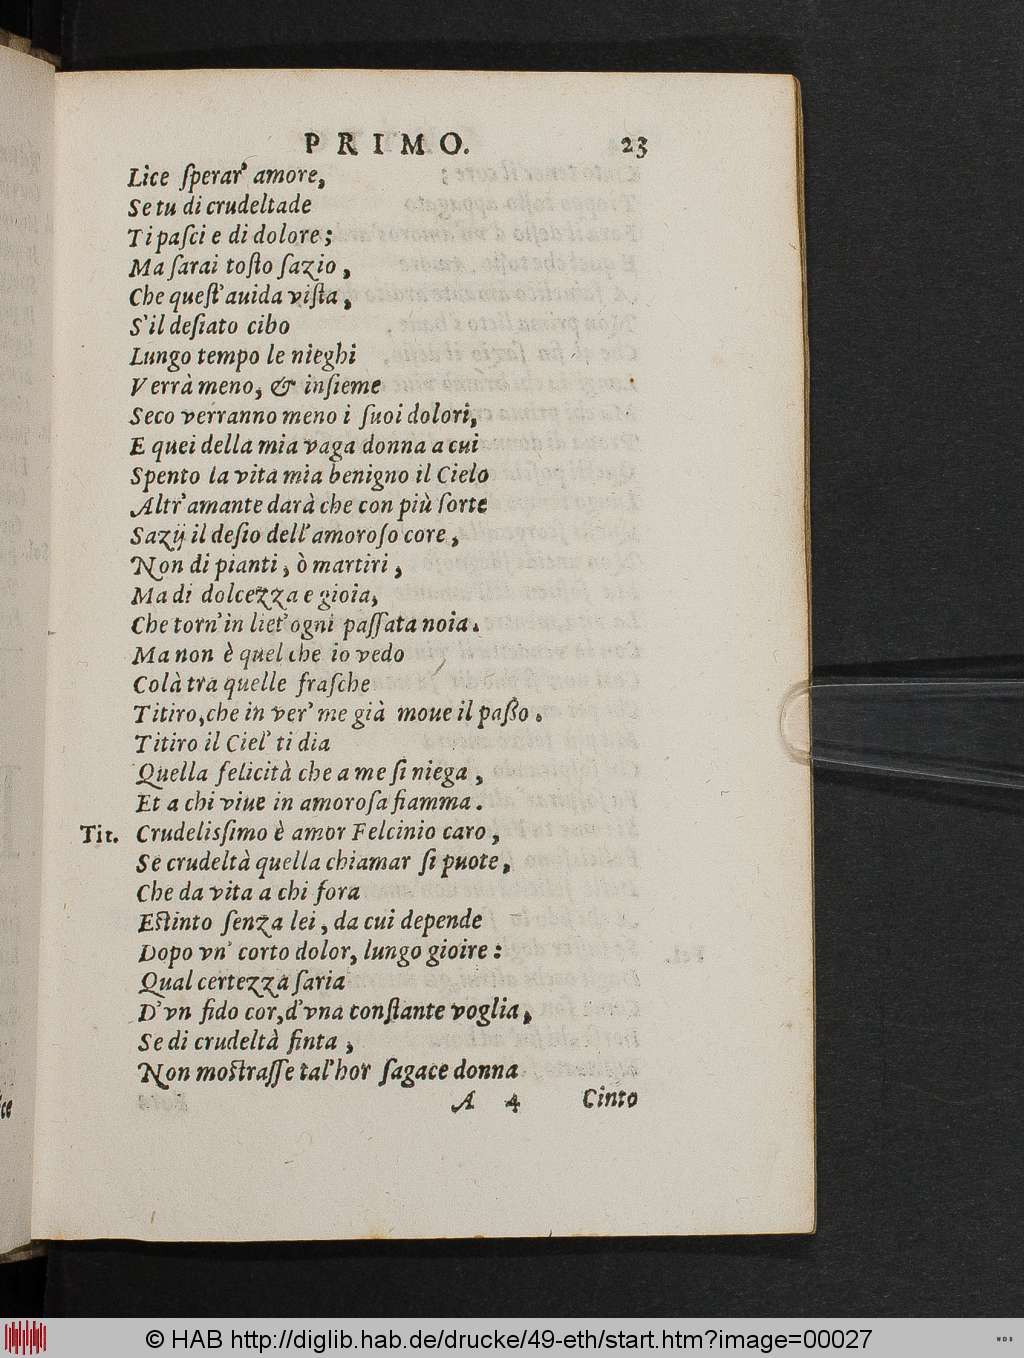 PRIMO. 23
Lice ſperar' amore,
Se tu di crudeltade
Ti paſci e di dolore;
Ma ſarai toſto ſazio,
Che queſt' auida viſta,
S'il deſiato cibo
Lungo tempo le nieghi
Verrà meno, & inſieme
Seco verranno meno i ſuoi dolori,
E quei della mia vaga donna a cui
Spento la vita mia benigno il Cielo
Altr' amante darà che con più ſorte
Sazij il deſio dell' amoroſo core,
Non di pianti, ò martiri,
Ma di dolcezza e gioia,
Che torn' in liet' ogni paſſata noia.
Ma non è quel che io vedo
Colà tra quelle fraſche
Titiro, che in ver' me già moue il paßo.
Titiro il Ciel' ti dia
Quella felicità che a me ſi niega,
Et a chi viue in amoroſa fiamma.
Tit. Crudeliſſimo è amor Felcinio caro,
Se crudeltà quella chiamar ſi puote,
Che da vita a chi fora
Eſtinto ſenza lei, da cui depende
Dopo vn' corto dolor, lungo gioire:
Qual certezza ſaria
D'vn fido cor, d'vna conſtante voglia,
Se di crudeltà finta,
Non moſtraſſe tal'hor ſagace donna
A 4 Cinto
© HAB http://diglib.hab.de/drucke/49-eth/start.htm?image=00027